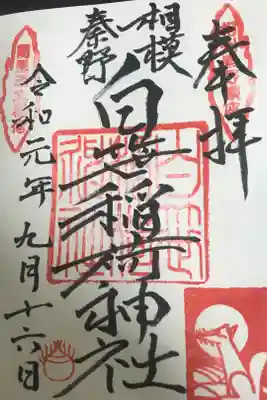 奉拝
相模
秦野
白笹稲荷神社
令和元年九月十六日